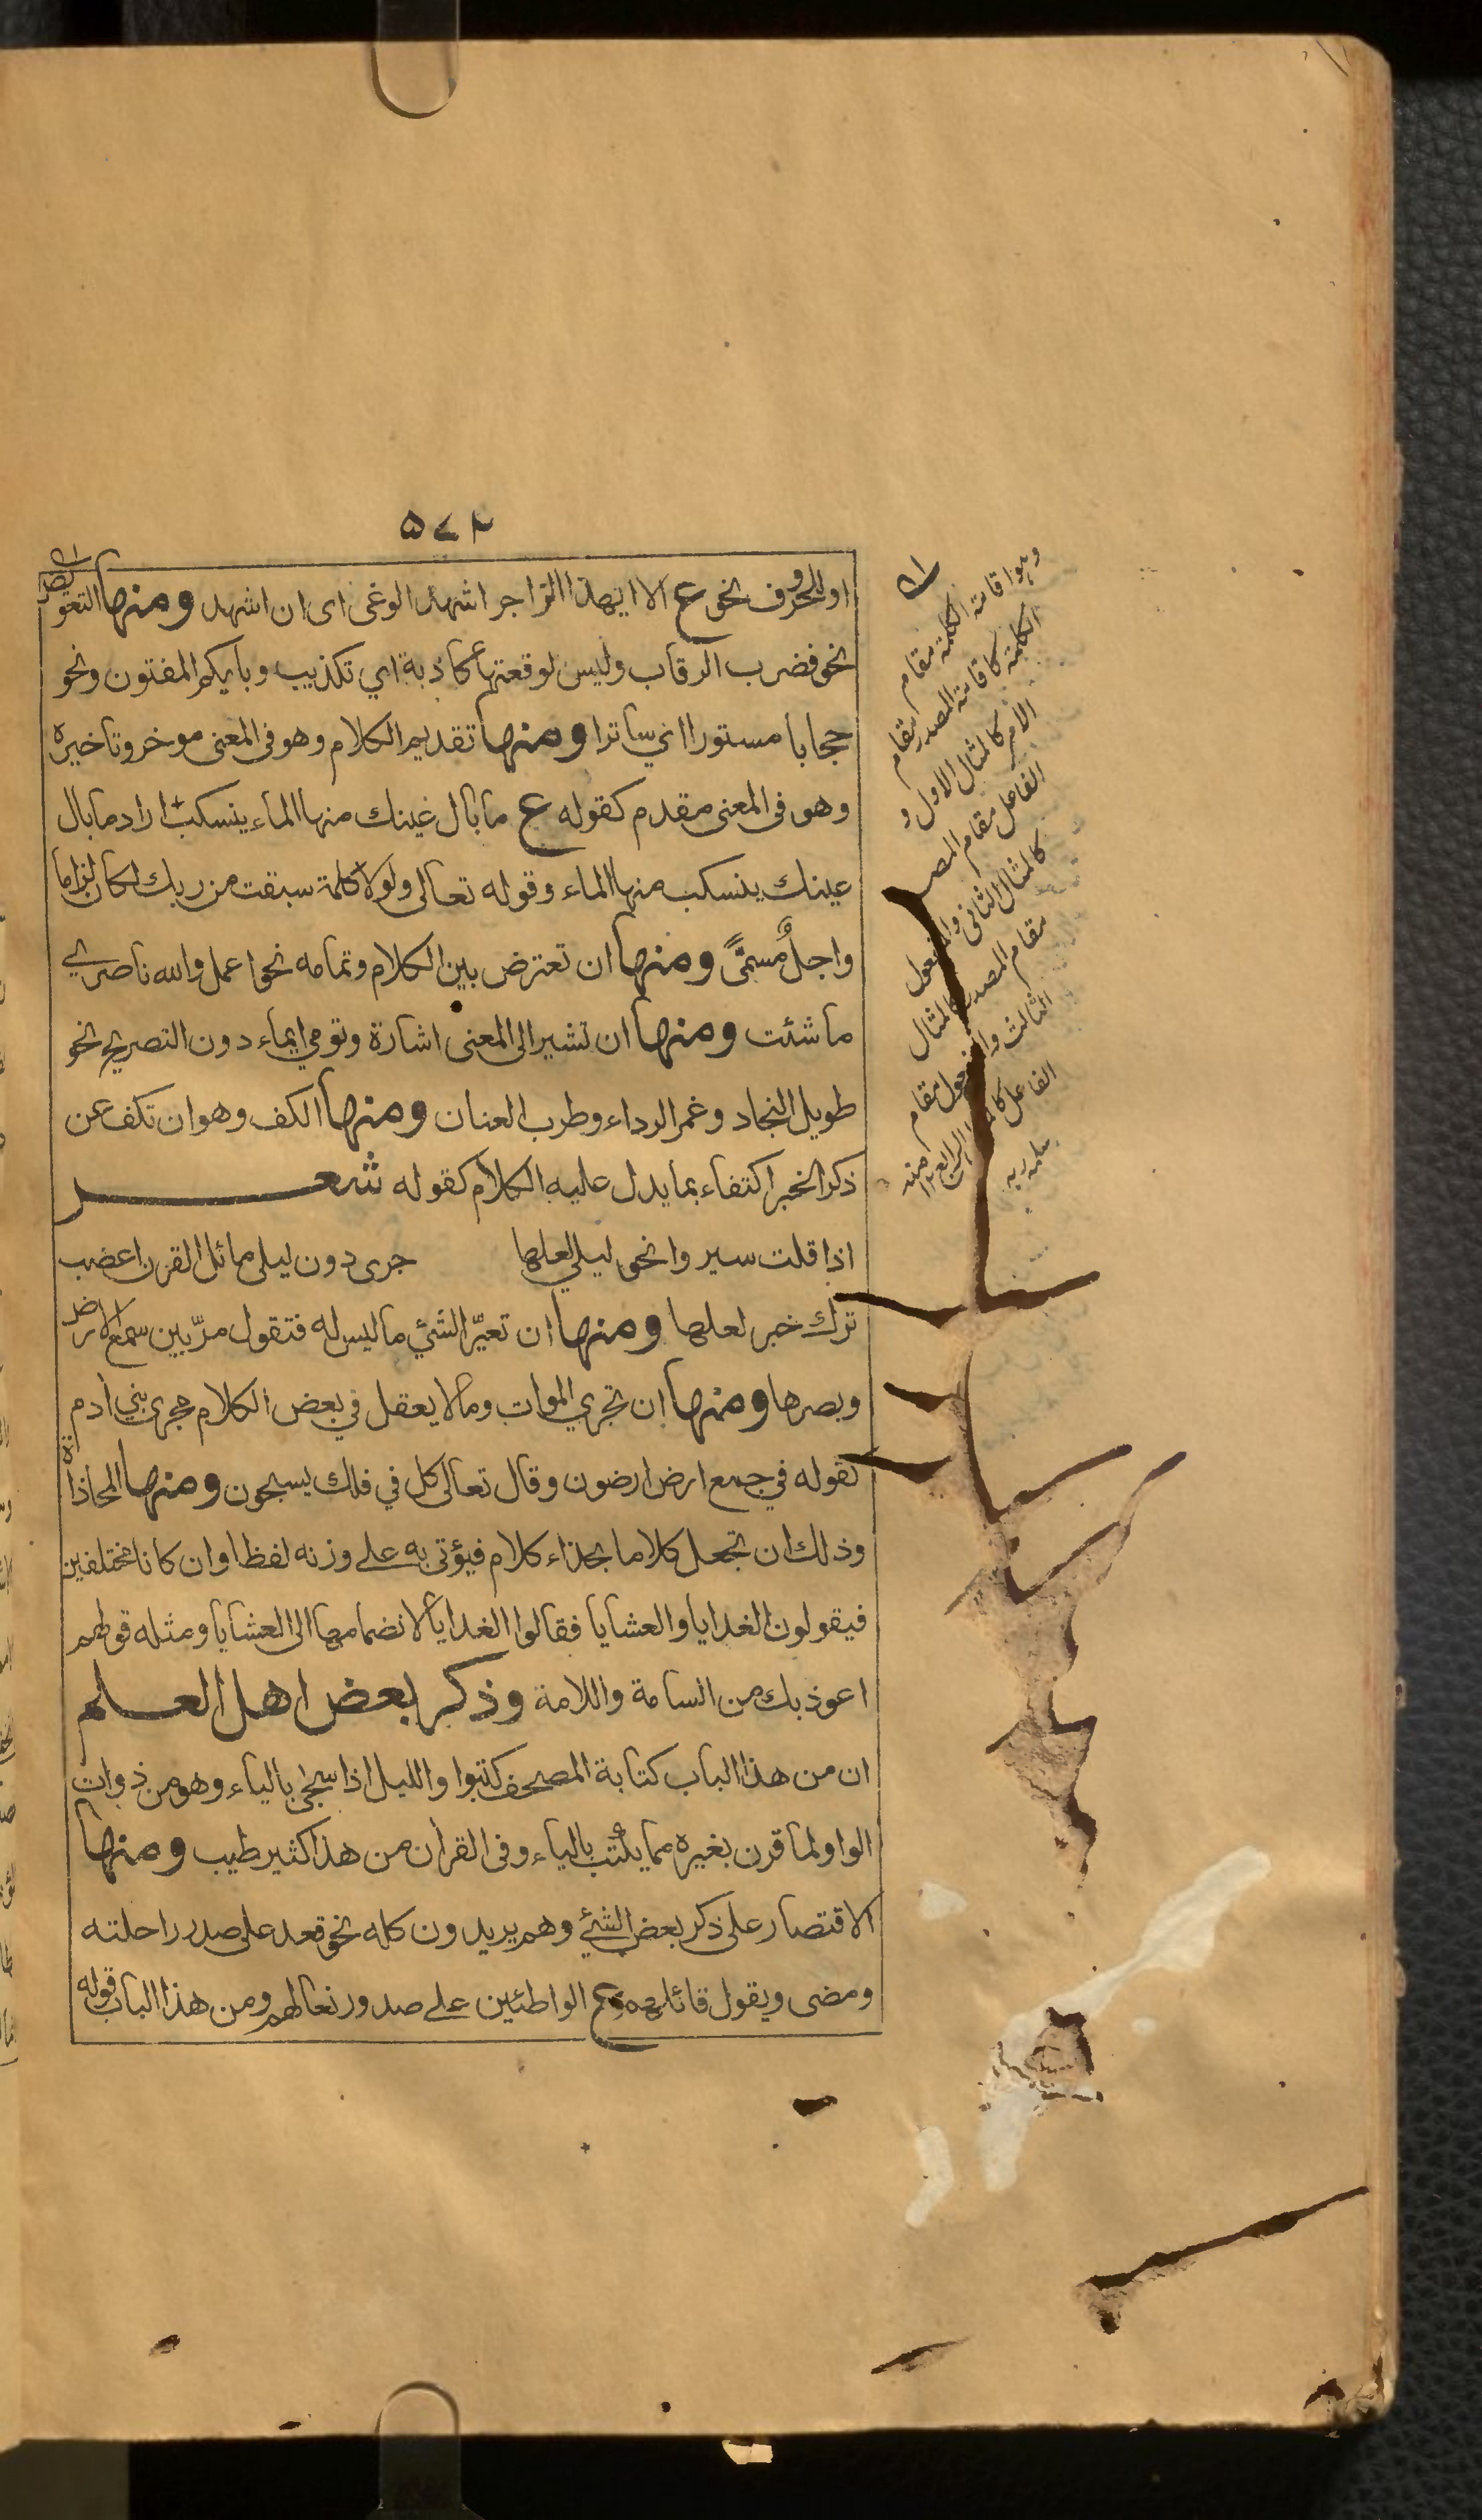 ٥٧٢
او للحروف نحو ع الا ايهذا الزاجر اشهد الوغى اى ان اشهد ومنها التعويض
نحو فضرب الرقاب وليس لوقعتها كاذبة اي تكذيب وبايكم المفتون ونحو
حجابا مستورا اي ساترا ومنها تقديم الكلام وهو فى المعنى موخر وتاخيره
وهو فى المعنى مقدم كقوله ع ما بال عينك منها الماء ينسكب اراد ما بال
عينك ينسكب منها الماء وقوله تعالى ولولا كلمة سبقت من ربك لكان لزاما
واجلٌ مسمًّى ومنها ان تعترض بين الكلام وتمامه نحو اعمل والله ناصري
ما شئت ومنها ان تشير الى المعنى اشارة وتومي ايماء دون التصريح نحو
طويل النجاد وغمر الرداء وطرب العنان ومنها الكف وهو ان تكف عن
ذكر الخبر اكتفاء بما يدل عليه الكلام كقوله شعر
اذا قلت سيروا نحو ليلى لعلها جرى دون ليلى مائل القرن اعضب
ترك خبر لعلها ومنها ان تعيّر الشئ ما ليس له فتقول مرّ بين سمع الارض
وبصرها ومنها ان تجري الموات وما لا يعقل في بعض الكلام مجرى بني ادم
كقوله في جمع ارض ارضون وقال تعالى كل في فلك يسبحون ومنها المحاذاة
وذلك ان تجعل كلاما بحذاء كلام فيؤتى به على وزنه لفظا وان كانا مختلفين
فيقولون الغدايا والعشايا فقالوا الغدايا لانضمامها الى العشايا ومثله قولهم
اعوذ بك من السامة واللامة وذكر بعض اهل العلم
ان من هذا الباب كتابة المصحف كتبوا والليل اذا سجى بالياء وهو من ذوات
الواو لما قرن بغيره مما يكتب بالياء وفى القرآن من هذا كثير طيب ومنها
الاقتصار على ذكر بعض الشئ وهم يريدون كله نحو قعد على صدر راحلته
ومضى ويقول قائلهم ع الواطئين على صدور نعالهم ومن هذا الباب قوله
وہو اقامة الكلمة مقام
الكلمة كاقامة المصدر مقام
الامر كالمثال الاول و
الفاعل مقام المصدر
كالمثال الثانى والمفعول
مقام المصدر كالمثال
الثالث والمفعول مقام
الفاعل كا الرابع ١٢ منه
سلمه ربه